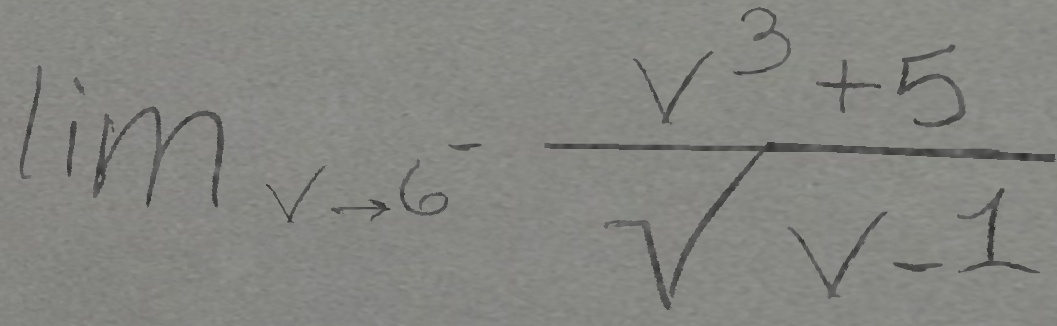 \lim_{v \to 6^-} \frac{v^3+5}{\sqrt{v-1}}